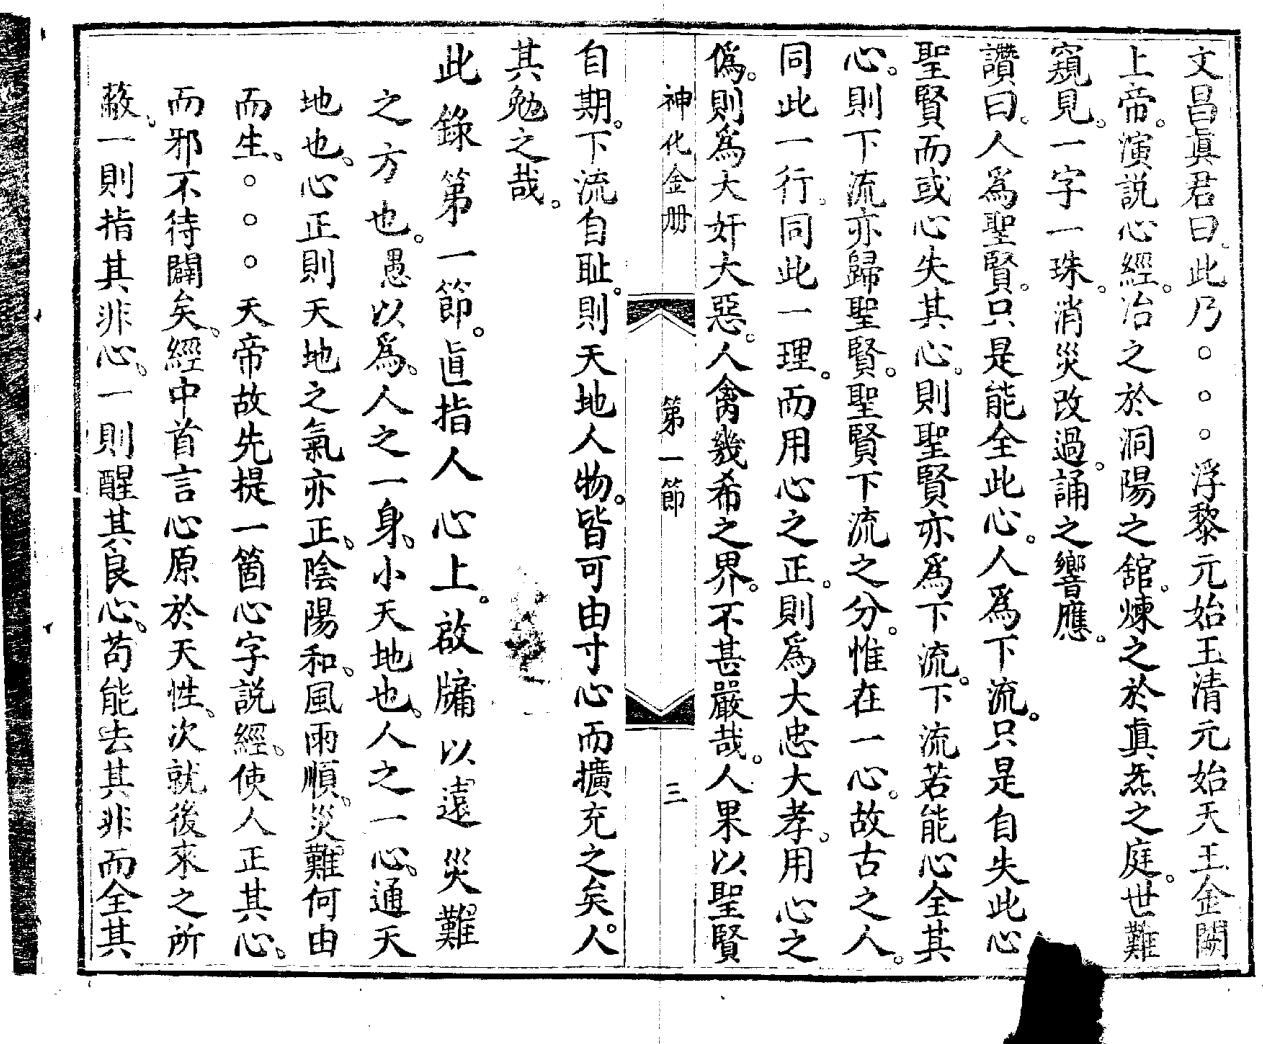 文昌眞君曰。此乃。。。浮黎元始玉清元始天王金闕
上帝。演説心經。冶之於洞陽之舘。煉之於眞炁之庭。世難
窺見。一字一珠。消災改過。誦之響應。
讚曰。人爲聖賢。只是能全此心。人爲下流。只是自失此心
聖賢而或心失其心。則聖賢亦爲下流。下流若能心全其
心。則下流亦歸聖賢。聖賢下流之分。惟在一心。故古之人。
同此一行。同此一理。而用心之正。則爲大忠大孝。用心之
僞。則爲大奸大惡。人禽幾希之界。不甚嚴哉。人果以聖賢
神化金册 第一節 三
自期。下流自耻。則天地人物。皆可由寸心而擴充之矣。人
其勉之哉。
此錄第一節。直指人心上。啟牖以遠災難
之方也。愚以爲。人之一身、小天地也、人之一心、通天
地也、心正則天地之氣亦正、陰陽和、風雨順、災難何由
而生、。。。天帝故先提一箇心字説經、使人正其心、
而邪不待闢矣、經中首言心原於天性、次就後來之所
蔽、一則指其非心、一則醒其良心、苟能去其非而全其